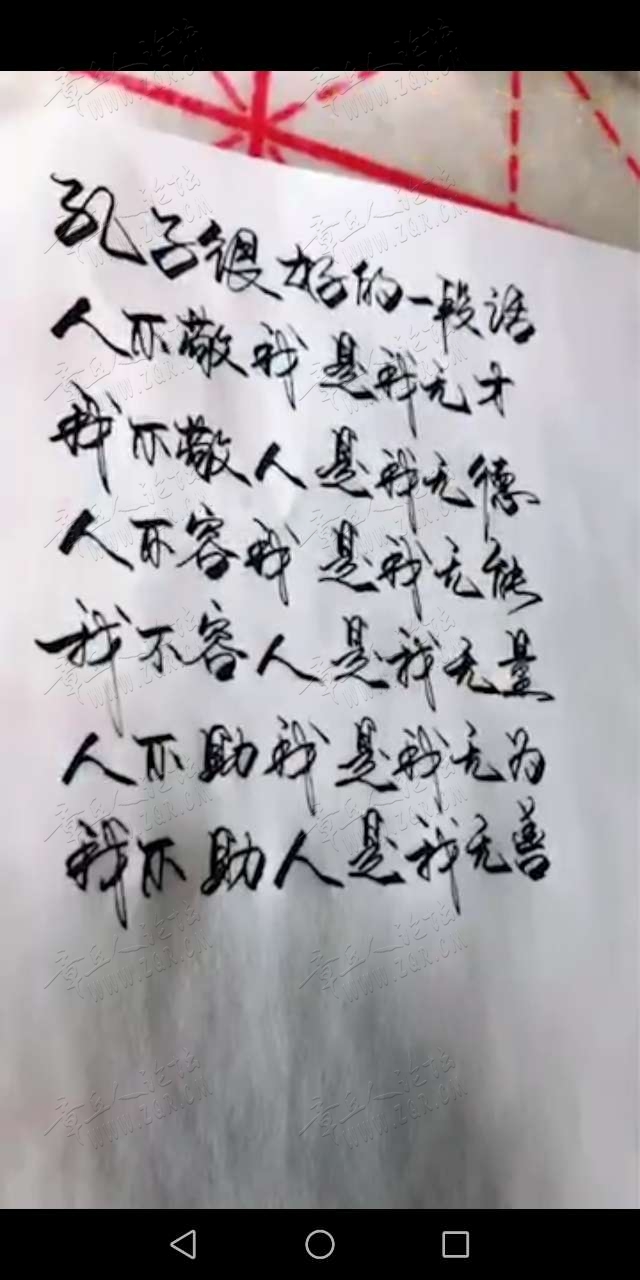 孔子很好的一段话
人不敬我是我无才
我不敬人是我无德
人不容我是我无能
我不容人是我无量
人不助我是我无为
我不助人是我无善
章丘人论坛
WWW.ZQR.CN